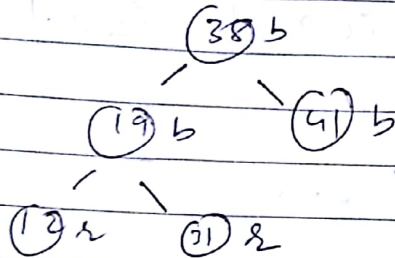 38 b
19 b 41 b
12 r 31 r